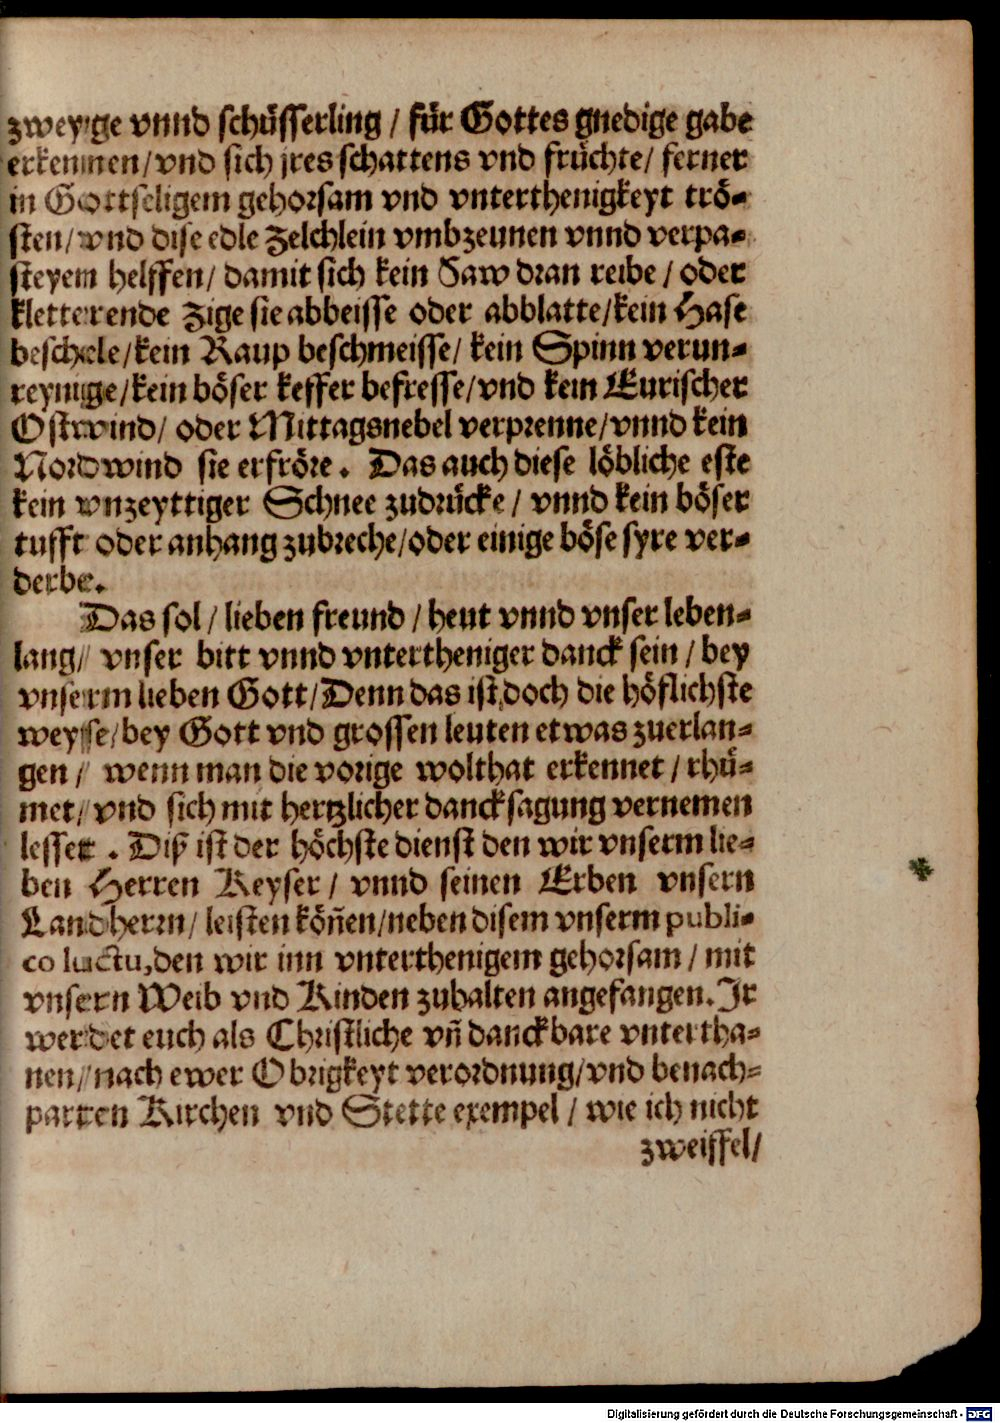 zweyge vnnd schüsserling / für Gottes gnedige gabe
erkennen/vnd sich jres schattens vnd früchte/ ferner
in Gottseligem gehorsam vnd vnterthenigkeyt trö-
sten/ vnd dise edle Zelchlein vmbzeunen vnnd verpa-
steyem helffen/ damit sich kein Saw dran reibe / oder
kletterende Zige sie abbeisse oder abblatte/kein Hase
beschele/kein Raup beschmeisse/ kein Spinn verun-
reynige/kein böser keffer befresse/vnd kein Eurischer
Ostwind/ oder Mittagsnebel verprenne/vnnd kein
Nordwind sie erfröre. Das auch diese löbliche este
kein vnzeyttiger Schnee zudrücke / vnnd kein böser
tufft oder anhang zubreche/oder einige böse syre ver-
derbe.
Das sol / lieben freund / heut vnnd vnser leben-
lang/ vnser bitt vnnd vntertheniger danck sein / bey
vnserm lieben Gott/Denn das ist doch die höflichste
weyse/bey Gott vnd grossen leuten etwas zuerlan-
gen/ wenn man die vorige wolthat erkennet / rhü-
met/ vnd sich mit hertzlicher dancksagung vernemen
lesset. Diß ist der höchste dienst den wir vnserm lie-
ben Herren Keyser / vnnd seinen Erben vnsern
Landherrn/ leisten köñen/neben disem vnserm publi-
co luctu, den wir inn vnterthenigem gehorsam / mit
vnsern Weib vnd Kinden zuhalten angefangen. Ir
werdet euch als Christliche vñ danckbare vntertha-
nen/ nach ewer Obrigkeyt verordnung/vnd benach-
parten Kirchen vnd Stette exempel / wie ich nicht
zweiffel/
Digitalisierung gefördert durch die Deutsche Forschungsgemeinschaft - DFG